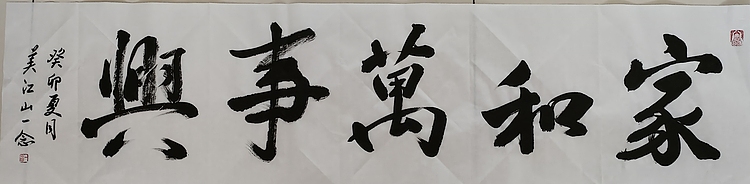 家和萬事興
癸卯夏月
美江山一念